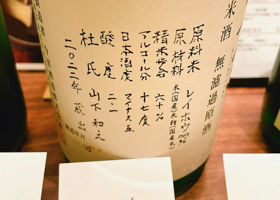 米酒 無濾過原酒
原料米 レイホウ100%
原材料 米(国産)米麹(国産米)
精米歩合 六十%
アルコール分 十七度
日本酒度 マイナス五
酸度 二.一
杜氏 山下和之
二〇二二年 蔵出